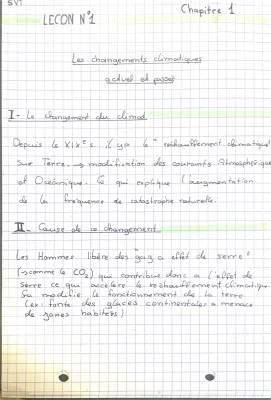 SVT
Chapitre 1
LECON N°1
Les changements climatiques
actuel et passés
I - Le changement du climat
Depuis le XIXe s. il y a le "réchauffement climatique"
sur Terre. → modification des courants Atmosphérique
et Océanique. Ce qui explique l'augmentation
de la fréquence de catastrophe naturelle.
II - Cause de ce changement
Les Hommes libère des "gaz a effet de serre"
(→ comme le CO2) qui contribue donc a l'effet de
serre ce qui accelère le réchauffement climatique.
Sa modifie le fonctionnement de la terre
(ex: fonte des glaces continentales → menace
de zones habitées)